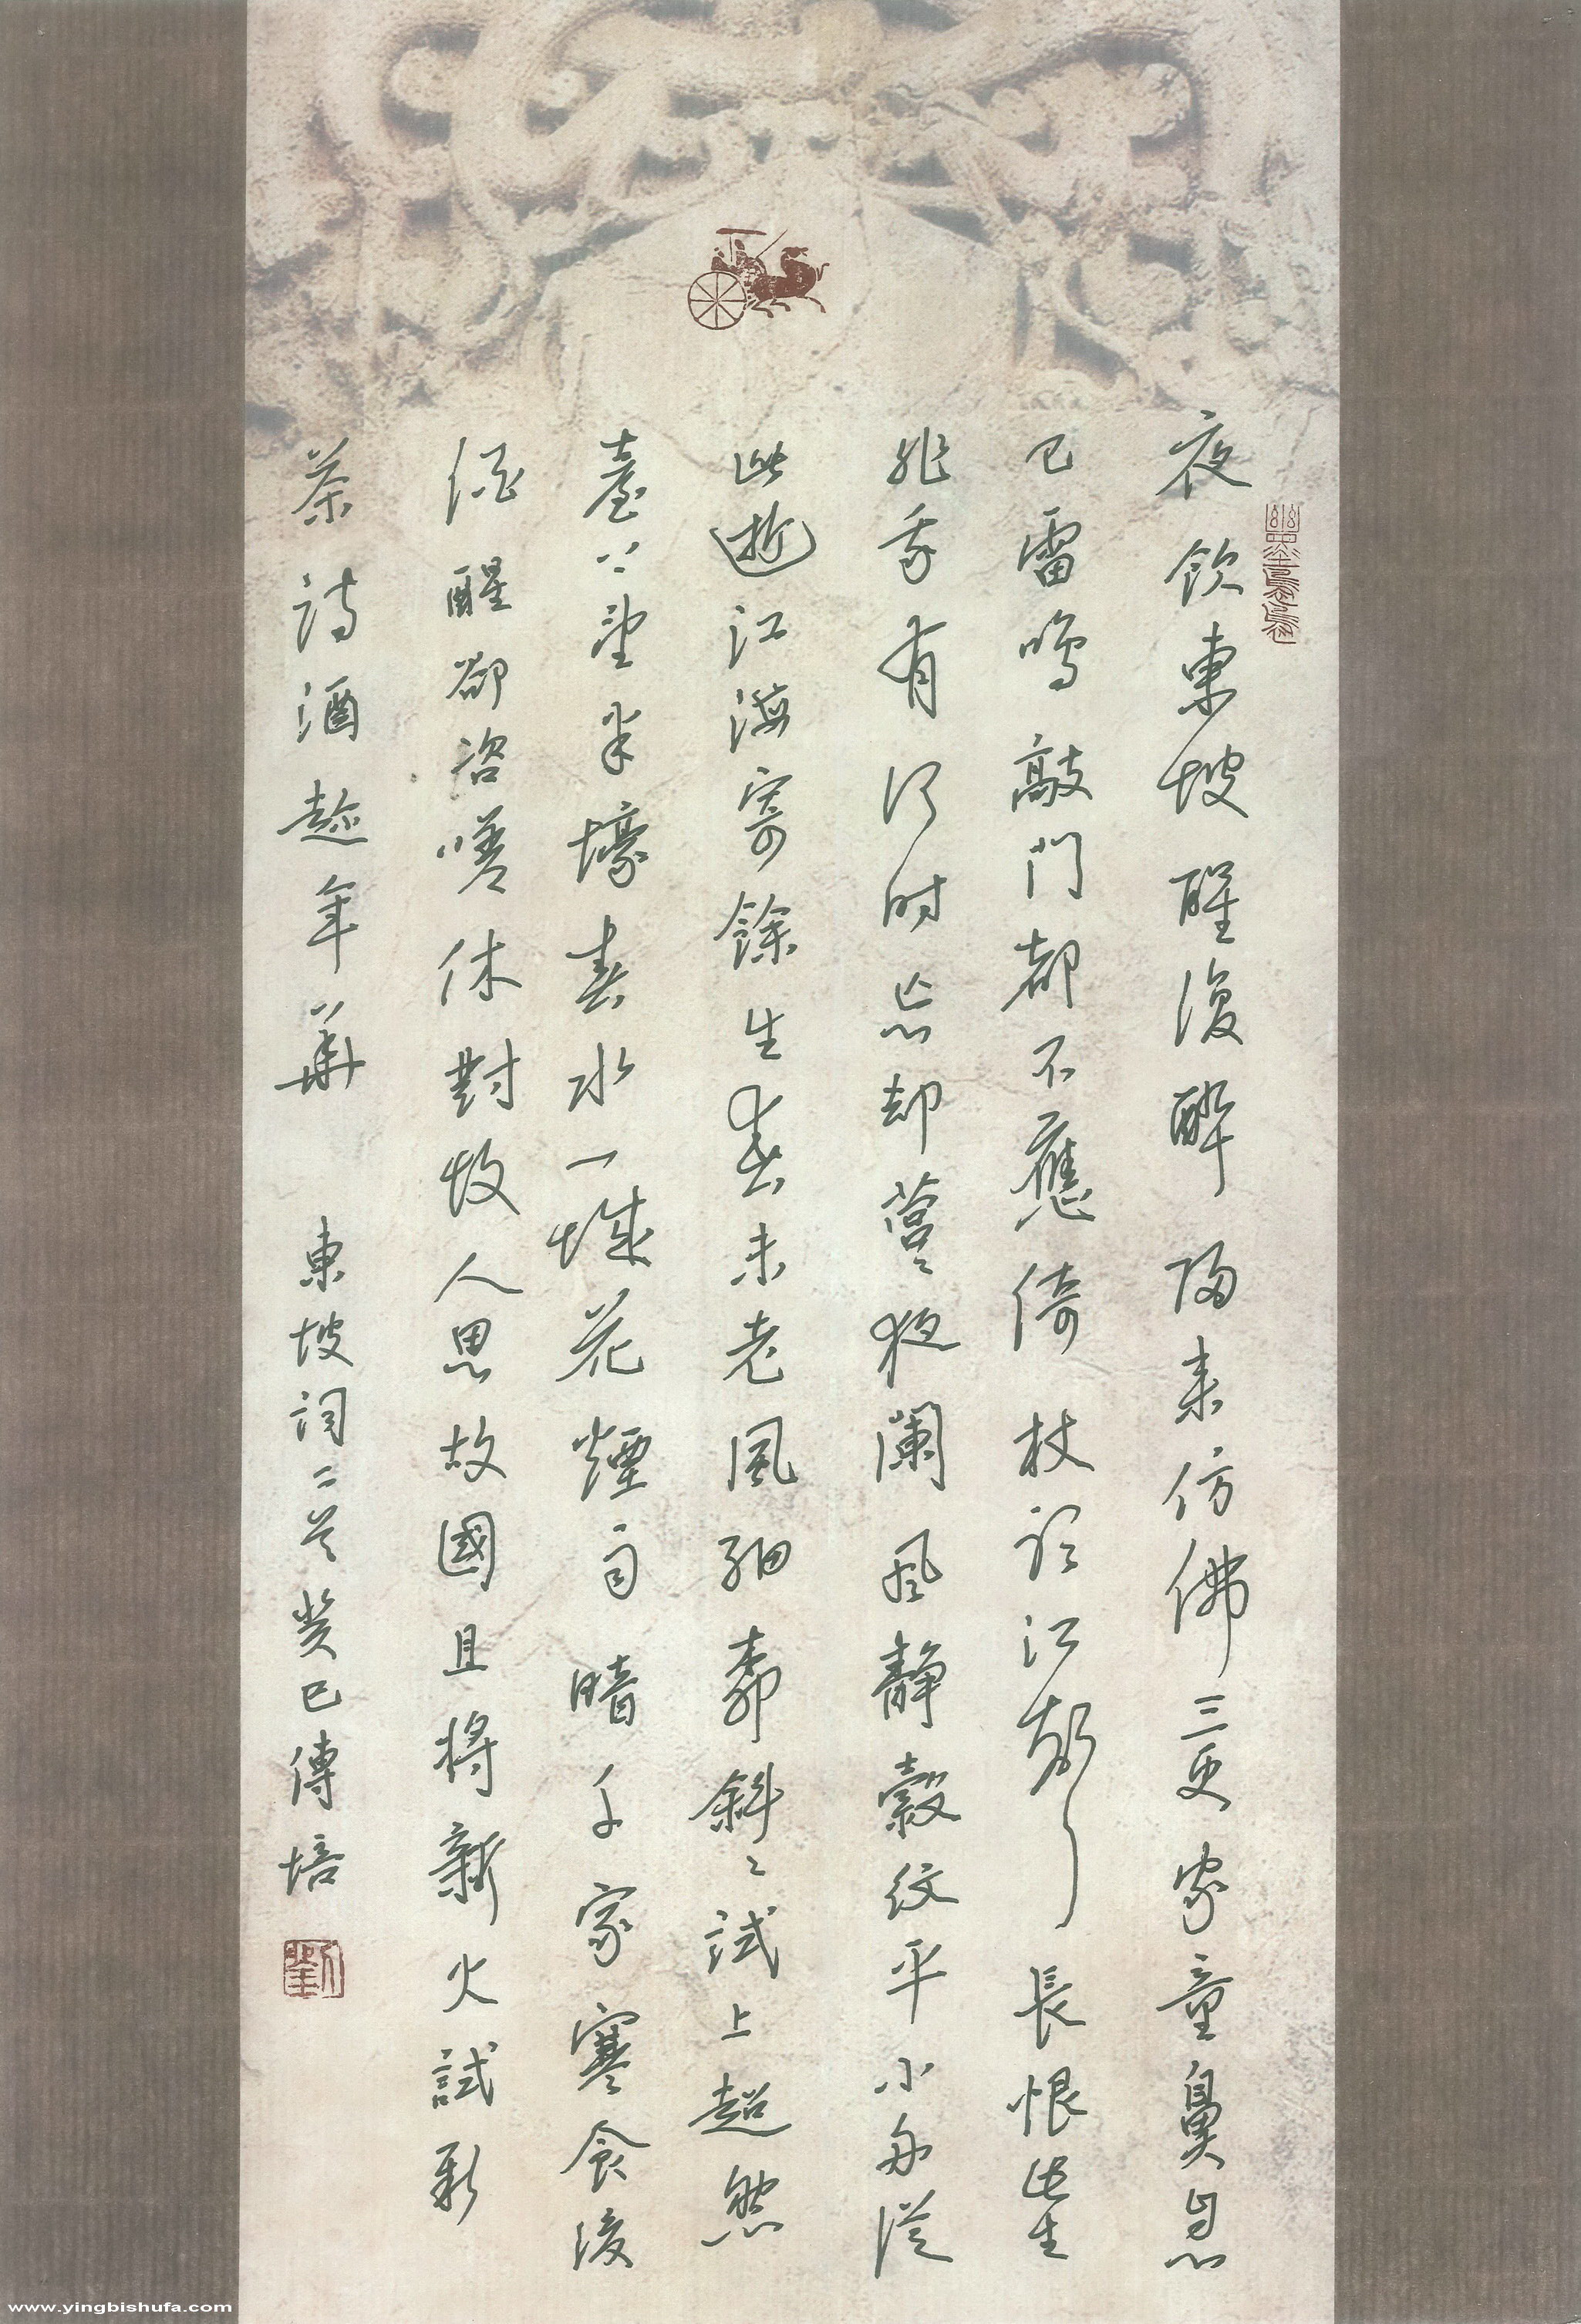 夜飲東坡醒復醉歸来仿佛三更家童鼻息
已雷鳴敲門都不應倚杖聽江聲長恨此生
非我有何时忘却營〻夜闌風靜縠紋平小舟從
此逝江海寄餘生春未老風細柳斜〻試上超然
臺上望半壕春水一城花煙雨暗千家寒食後
酒醒卻咨嗟休對故人思故國且將新火試新
茶詩酒趁年華 東坡詞二首癸巳傳培
劉
www.yingbishufa.com